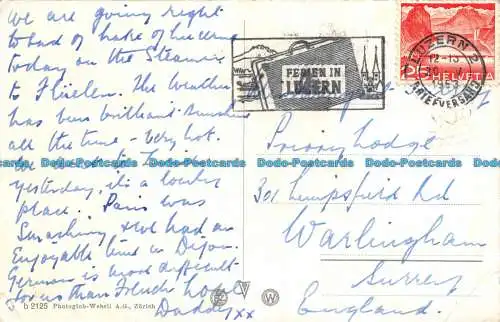 We are going right
to head of Lake of Lucerne
today on the Steamer
to Flüelen. The weather
has been brilliant sunshine
all the time - very hot.
We
yesterday, it's a lovely
place. Paris was
Smashing & we had an
Enjoyable time in Dijon.
German is more difficult
for us than French. love
Daddy xx
FERIEN IN
LUZERN
LUZERN 2
12-13
BRIEFVERSAND
HELVETIA
Priory Lodge
301 Limpsfield Rd
Warlingham
Surrey
England.
h 2125 Photoglob-Wehrli A.G., Zürich
W
www.bidstart.com